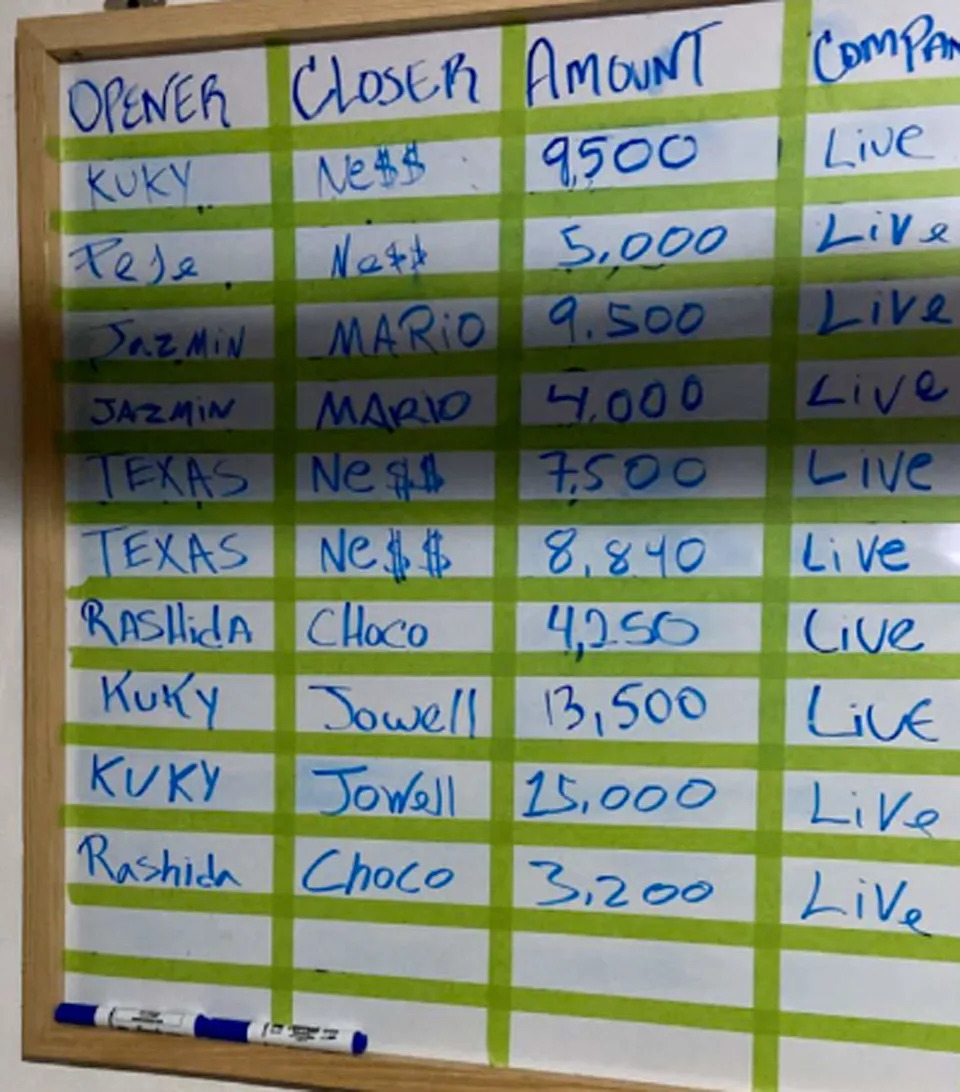 OPENER CLOSER AMOUNT COMPAN
KUKY Ne$$ 9,500 Live
PeJe Ne$$ 5,000 Live
JazMiN MARiO 9.500 Live
JAZMiN MARIO 4,000 Live
TEXAS Ne$$ 7,500 Live
TEXAS Ne$$ 8,840 Live
RASHidA CHoco 4,250 Live
KuKy Jowell 13,500 LivE
KUKY JoWell 15,000 LiVe
Rashida Choco 3,200 LiVe